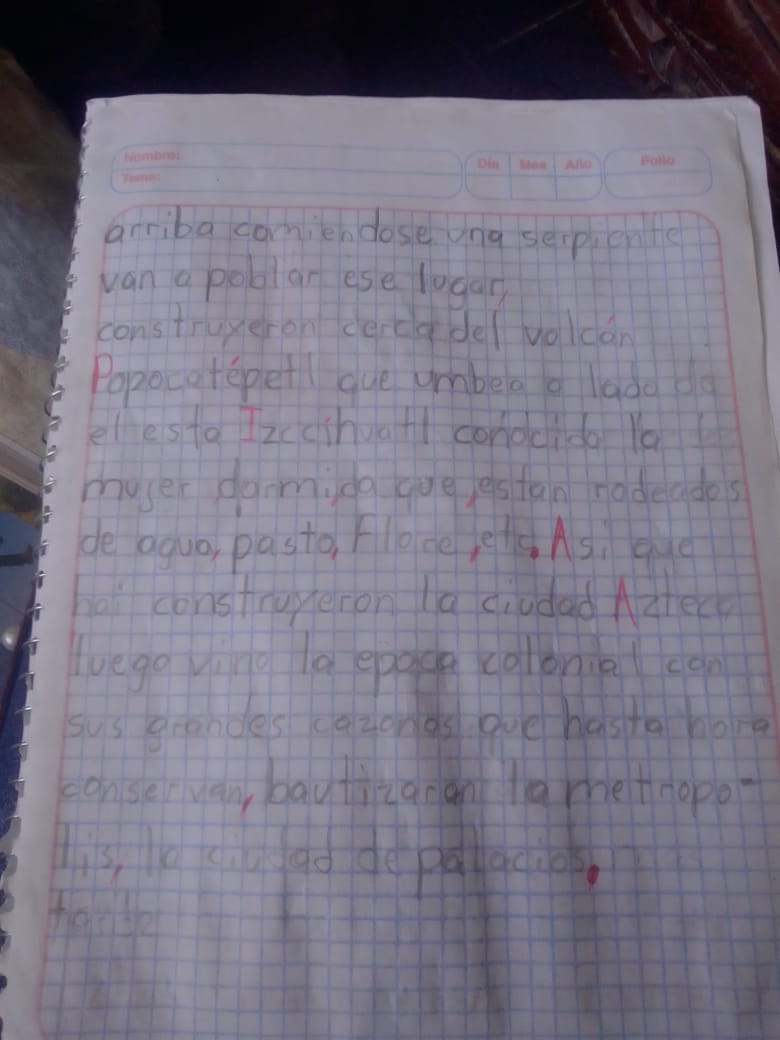 Nombre:
Tema:
Día Mes Año Folio
arriba comiendose una serpiente
van a poblar ese lugar,
construyeron cerca del volcán
Popocatépetl que umbea a lado de
el esta Izccihuatl conocida la
mujer dormida que, estan rodeados
de agua, pasto, Flore, etc. Asi que
hai construyeron la ciudad Azteca
luego vino la epoca colonial con
sus grandes cazonas que hasta hora
conservan, bautizaron la metropo-
lis, la ciudad de palacios. mas
tarde